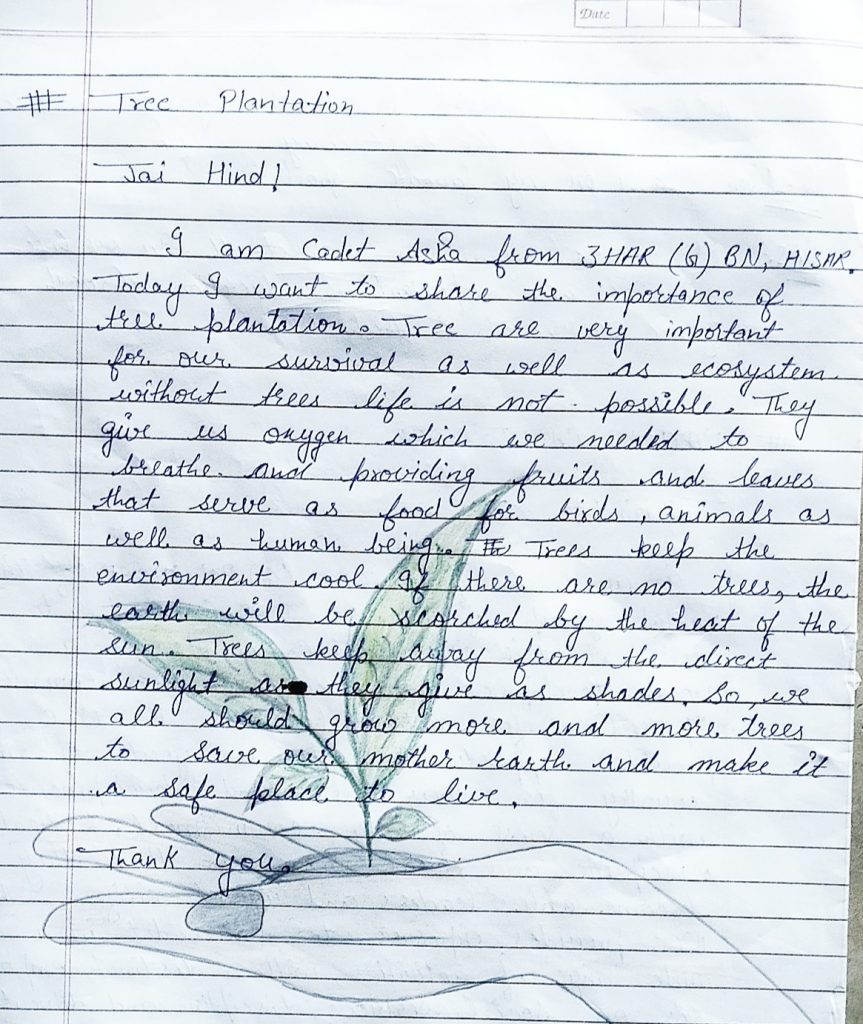 Date
# Tree Plantation
Jai Hind!
I am Cadet Asha from 3HAR (G) BN, HISAR.
Today I want to share the importance of
tree plantation. Tree are very important
for our survival as well as ecosystem.
without trees life is not possible. They
give us oxygen which we needed to
breathe and providing fruits and leaves
that serve as food for birds, animals as
well as human being. Trees keep the
environment cool. If there are no trees, the
earth will be scorched by the heat of the
sun. Trees keep away from the direct
sunlight as they give as shades. So, we
all should grow more and more trees
to save our mother earth and make it
a safe place to live.
Thank you.